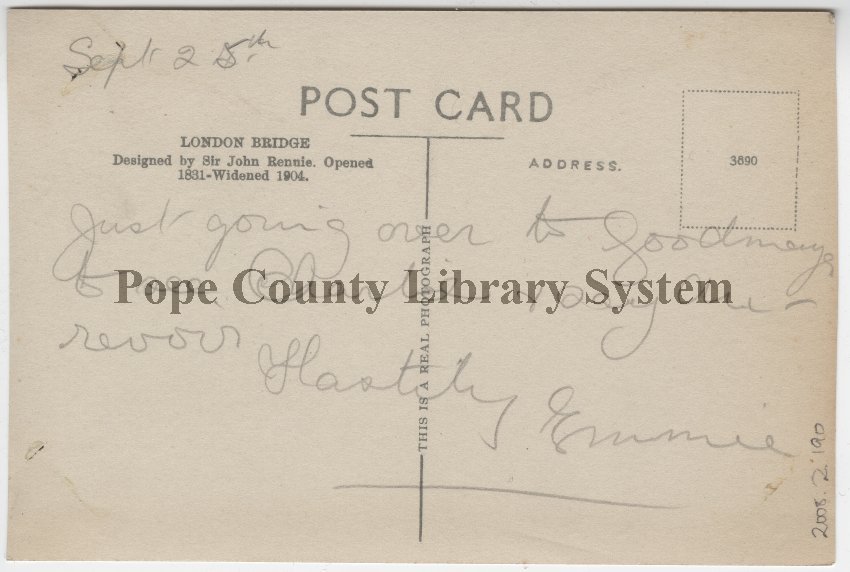 Sept 25th
POST CARD
LONDON BRIDGE
Designed by Sir John Rennie. Opened
1831-Widened 1904.
ADDRESS.
3690
THIS IS A REAL PHOTOGRAPH
Just going over to Goodmays
to see Charlie
Pope County Library System
revoir
Hastily
Emmie
2008.2.190